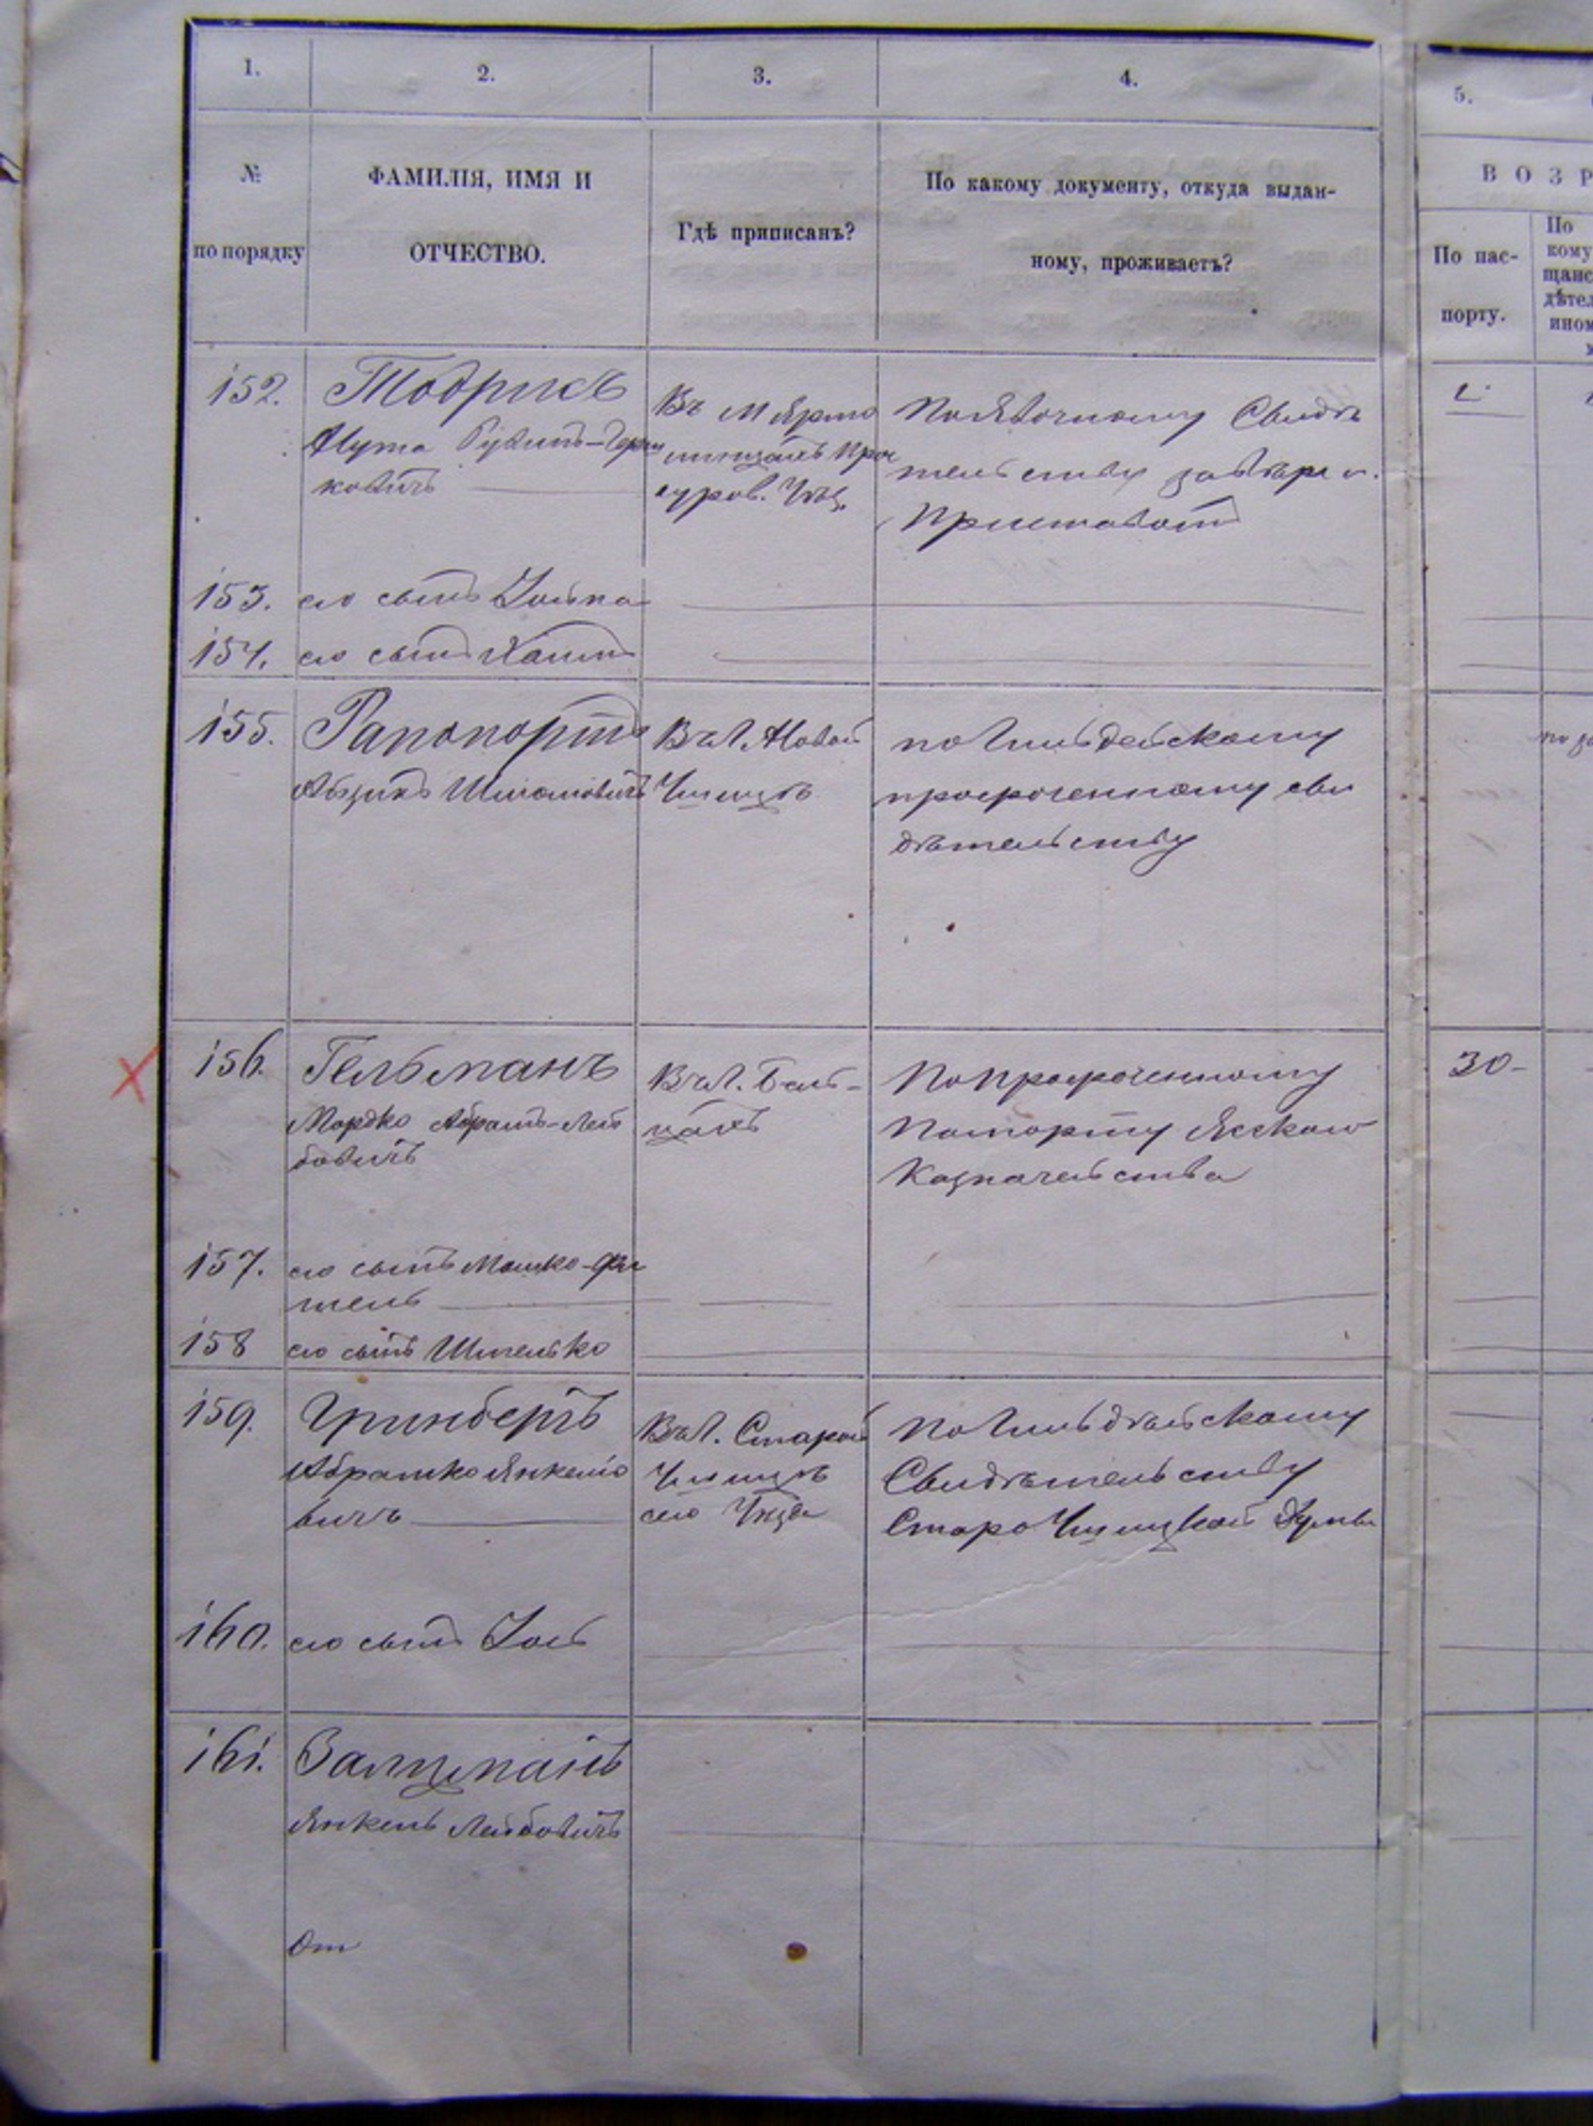 1.
2.
3.
4.
5.
№
по порядку
ФАМИЛІЯ, ИМЯ И
ОТЧЕСТВО.
Гдѣ приписанъ?
По какому документу, откуда выдан-
ному, проживаетъ?
ВОЗР
По пас-
порту.
По
кому
щанс
дѣтел
ином
152.
Тодрисъ
Нута Рувинъ-Герш
ковичъ
Въ м Ярмо
линцахъ Прос
куров. Уѣз.
По Явочному Свидѣ
тельству завѣрен.
Приставомъ
153. его сынъ Іойна
154. его сынъ Хаимъ
155.
Рапопортъ
Айзикъ Шмоновичъ
Въ м. Новой
Ушицѣ
по Гильдейскому
просроченному сви
дѣтельству
156.
Гельманъ
Мордко Абрамъ-Лей
бовичъ
Въ м. Бель-
цахъ
По просроченному
Паспорту Ясскаго
Казначейства
30-
157. его сынъ Мошко-Фи
тель
158 его сынъ Шмелько
159.
Гринбергъ
Абрамко Янкелю
вичъ
Въ м. Старой
Ушицѣ
сего Уѣзда
По Гильдѣйскому
Свидѣтельству
Старо Ушицкой Думы
160. его сынъ Іось
161.
Залцманъ
Янкель Лейбовичъ
От